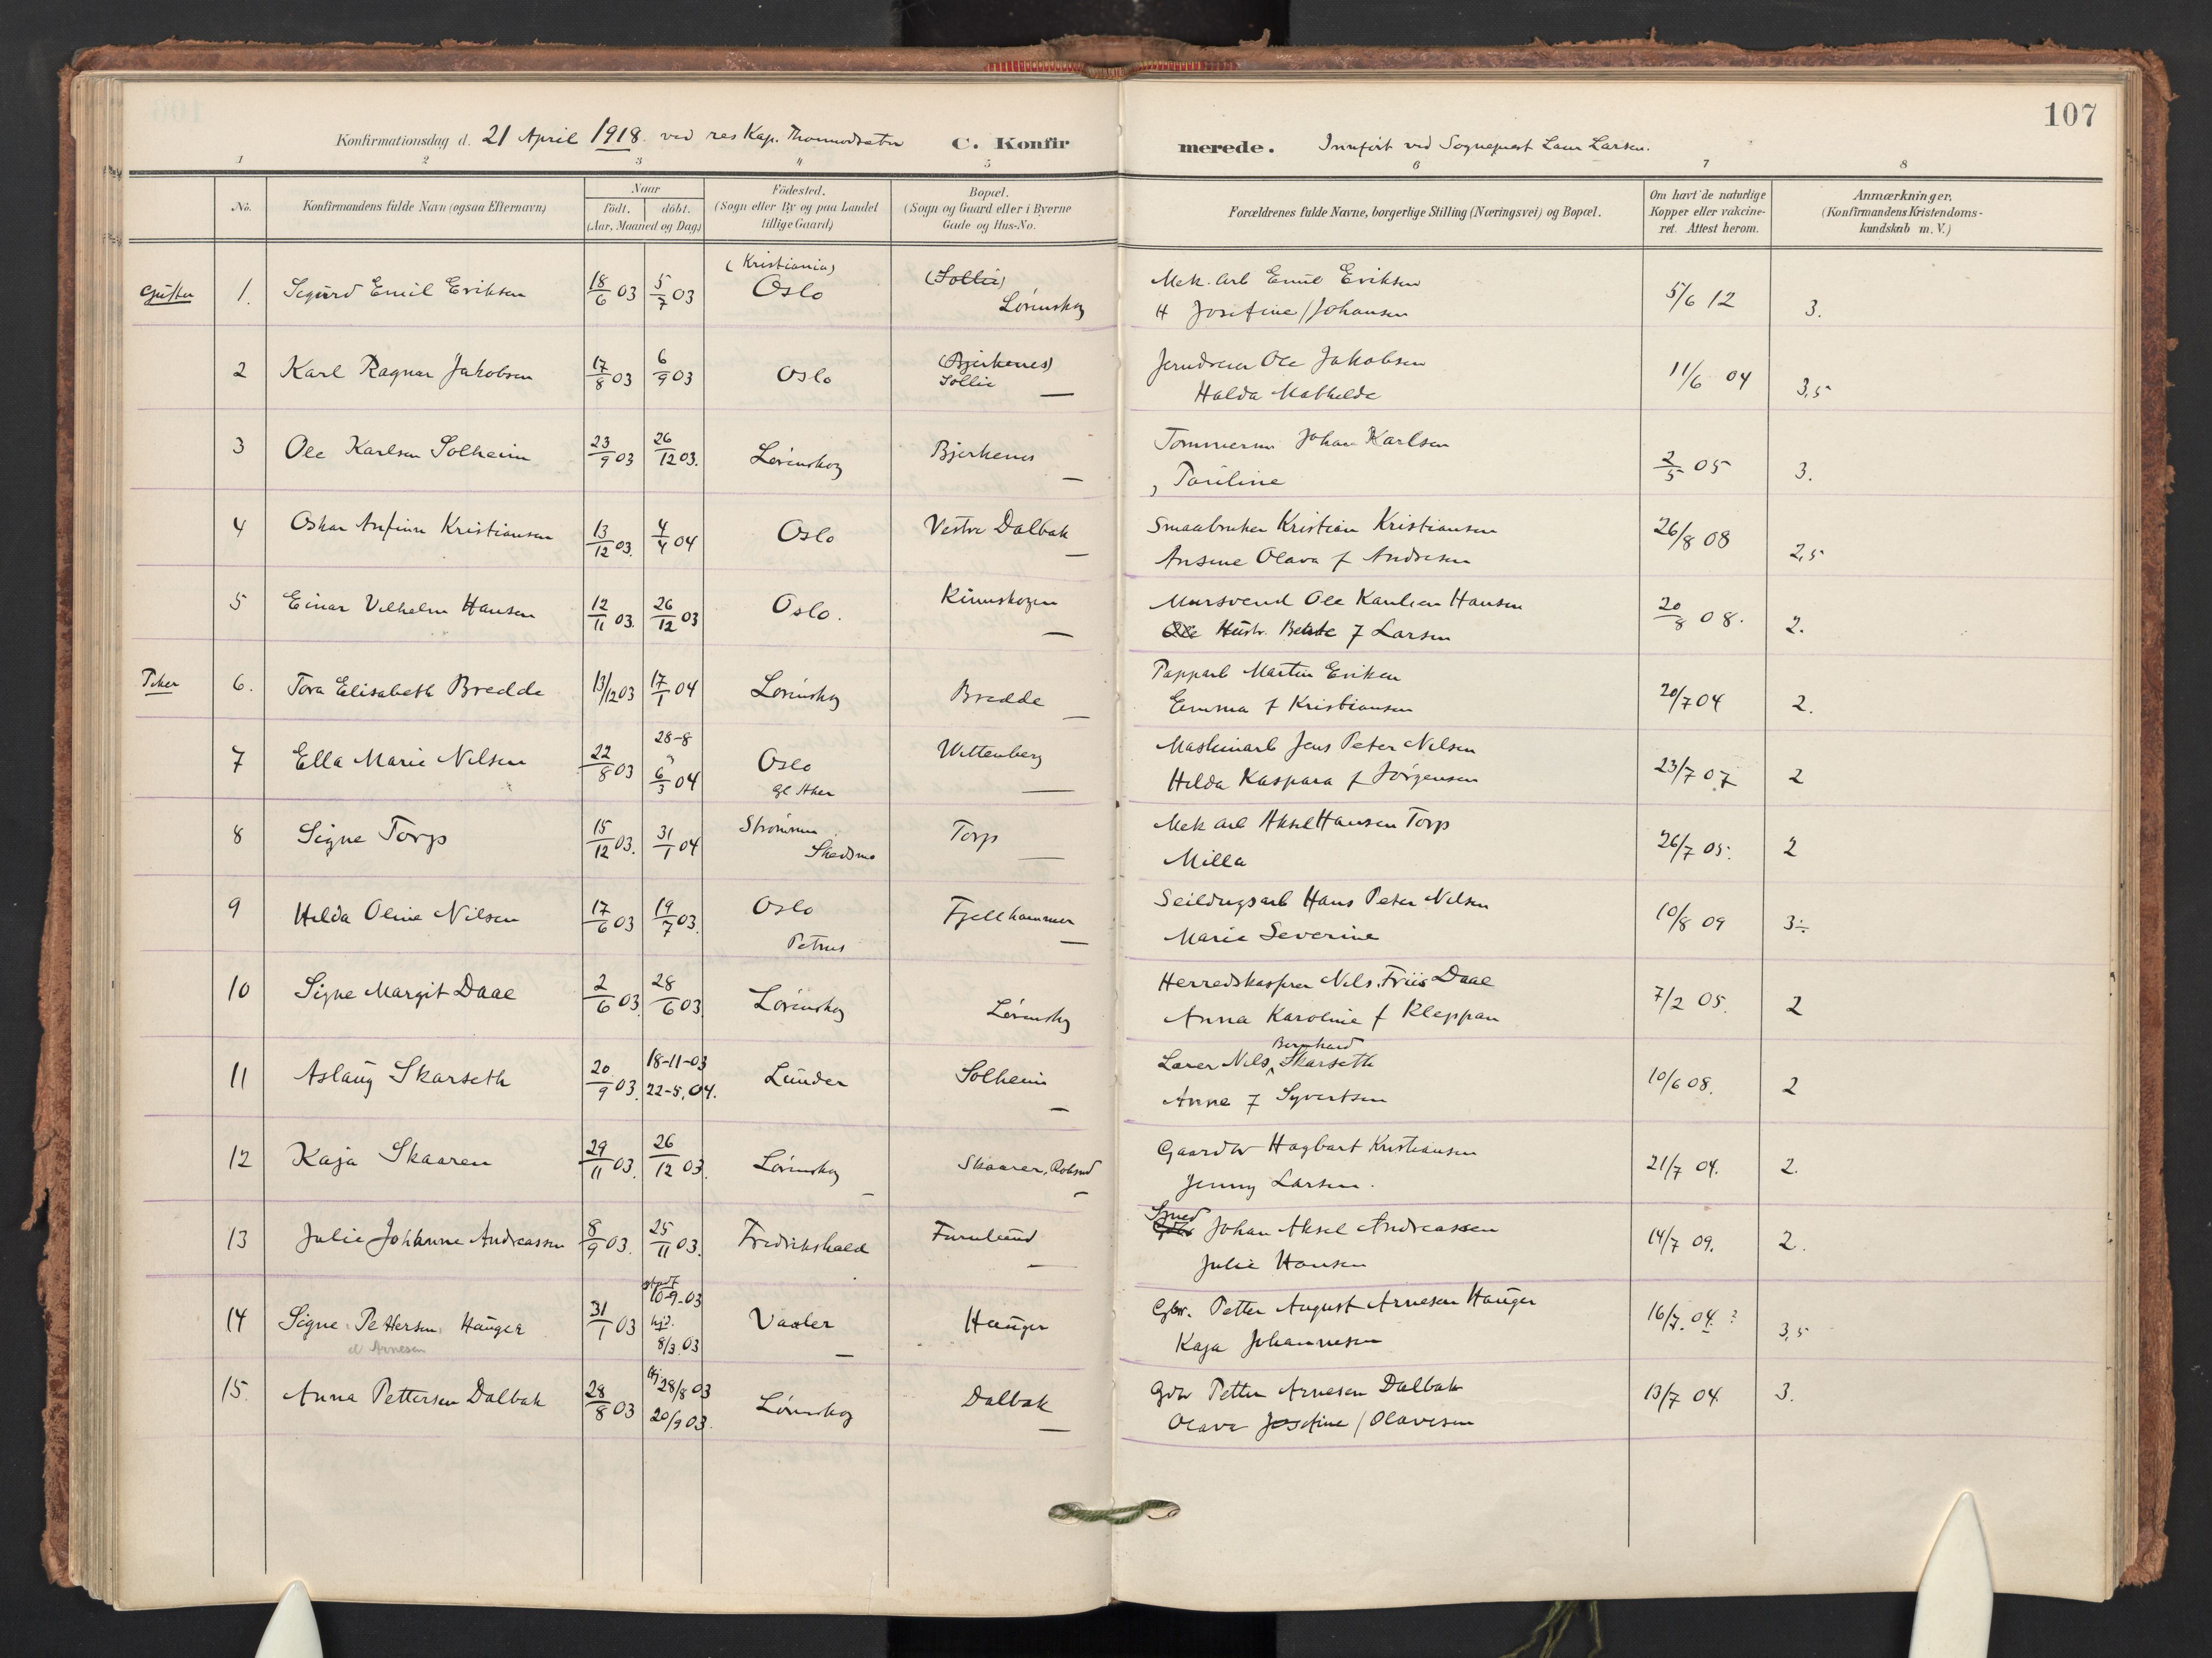 107
Konfirmationsdag d. 21 April 1918. ved res Kap. C. Konfirmerede. Innført ved Sogneprest Laur Larsen.
1 2 3 4 5 6 7 8
No. Konfirmandens fulde Navn (ogsaa Efternavn) Naar født. døbt. (Aar, Maaned og Dag) Födested. (Sogn eller By og paa Landet tillige Gaard) Bopæl. (Sogn og Gaard eller i Byerne Gade og Hus-No. Forældrenes fulde Navne, borgerlige Stilling (Næringsvei) og Bopæl. Om havt de naturlige Kopper eller vakcineret. Attest herom. Anmærkninger. (Konfirmandens Kristendomskundskab m. V.)
Gutter 1. Sigurd Emil Eriksen 18/6 03 5/7 03 (Kristiania) Oslo (Sollia) Lørenskog Mek. arb Emil Eriksen 5/6 12 3.
H Josefine / Johansen
2 Karl Ragnar Jakobsen 17/8 03 6/9 03 Oslo (Bjerkenes) Sollie — Jerndreier Ole Jakobsen 11/6 04 3,5
Halda Mathilde
3 Ole Karlsen Solheim 23/9 03 26/12 03. Lørenskog Bjerkenes — Tømmerm Johan Karlsen 2/5 05 3.
, Pauline
4 Oskar Anfinn Kristiansen 13/12 03. 4/4 04 Oslo Vestre Dalbak — Smaabruker Kristian Kristiansen 26/8 08 2,5
Ansine Olava f Andresen
5 Einar Vilhelm Hansen 12/11 03. 26/12 03 Oslo. Rünnskogen — Mursvend Ole Hansen 20/8 08. 2.
Ole Hustr. Berte f Larsen
Piker 6. Tora Elisabeth Bredde 13/12 03 17/1 04 Lørenskog Bredde — Papparb Martin Eriksen 20/7 04 2.
Emma f Kristiansen
7 Ella Marie Nilsen 22/8 03 28-8 6/3 04 Oslo Gl Aker Wittenberg — Maskinarb Jens Peter Nilsen 23/7 07 2
Hilda Kaspara f Jørgensen
8 Signe Torp 15/12 03. 31/1 04 Strømmen Skedsmo Torp — Mek arb Aksel Hansen Torp 26/7 05. 2
Milla
9 Hilda Oline Nilsen 17/6 03 19/7 03. Oslo Petrus Fjellhammer — Seildugsarb Hans Peter Nilsen 10/8 09 3÷
Marie Severine
10 Signe Margit Daae 2/6 03. 28/6 03. Lørenskog Lørenskog Herredskasserer Nils Friis Daae 7/2 05. 2
Anna Karoline f Kleppan
11 Aslaug Skarseth 20/9 03. 18-11-03 22-5. 04. Lunder Solheim — Lærer Nils Bernhard Skarseth 10/6 08. 2
Anne f Syvertsen
12 Kaja Skaaren 29/11 03. 26/12 03. Lørenskog — Skaarer, Robsrud — Gaardbr Hagbart Kristiansen 21/7 04. 2.
Jenny Larsen.
13 Julie Johanne Andreassen 8/9 03. 25/11 03. Fredrikshald Furulund — Smed Gdbr Johan Aksel Andreassen 14/7 09. 2.
Julie Hansen
14 Signe Pettersen Hauger el Arnesen 31/1 03 stadf 10-9-03 hjd. 8/3 03 Vaaler — Hauger Gbr. Petter August Arnesen Hauger 16/7. 04. ? 3,5
Kaja Johannesen
15. Anna Pettersen Dalbak 28/8 03 hj 28/8 03 20/9 03. Lørenskog Dalbak — Gdbr Petter Arnesen Dalbak 13/7 04. 3.
Olava Josefine / Olavesen